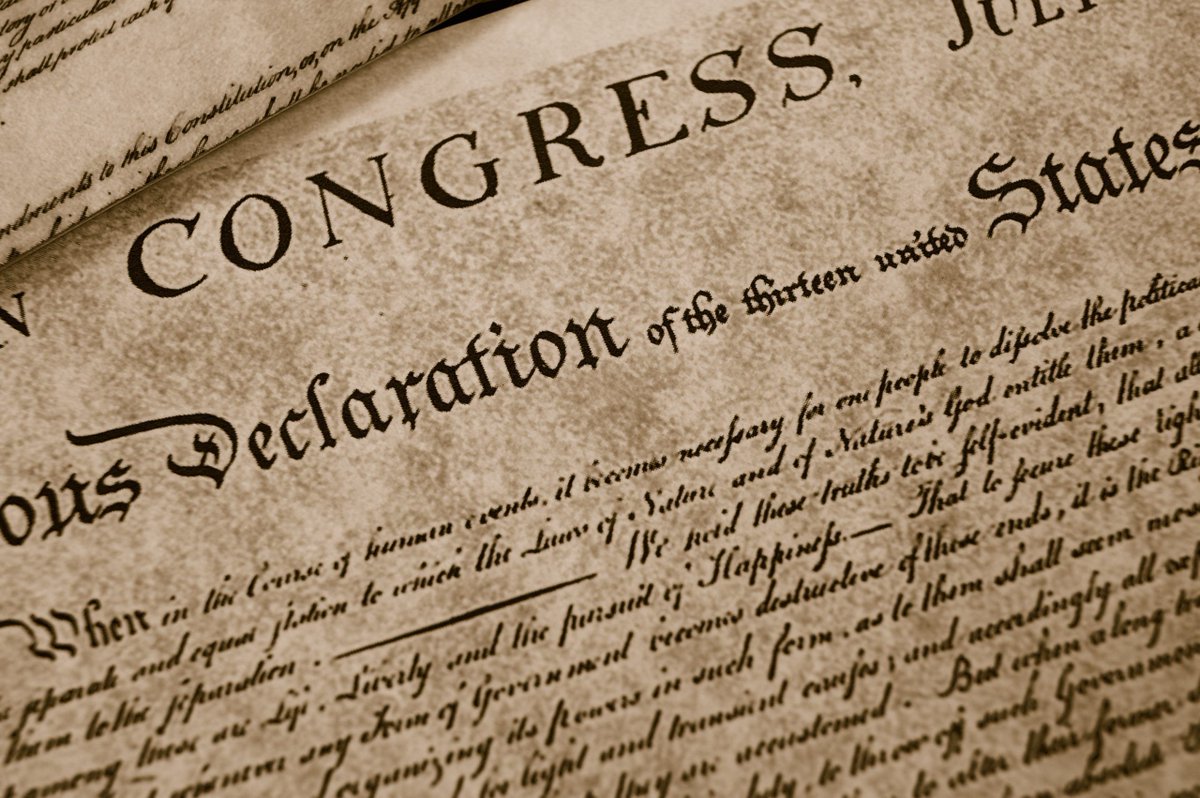 tory or
particular
shall protect each of
ndments to this Constitution, or, on the App
N CONGRESS, JULY
ous Declaration of the thirteen united States
When in the Course of human events, it becomes necessary for one people to dissolve the political
separate and equal station to which the Laws of Nature and of Nature's God entitle them, a
them to the separation. — We hold these truths to be self-evident, that all
among these are Life, Liberty and the pursuit of Happiness.— That to secure these right
whenever any Form of Government becomes destructive of these ends, it is the Ri
organizing its powers in such form, as to them shall seem most
light and transient causes; and accordingly all exp
they are accustomed. But when a long tr
duty, to throw off such Government
to alter their former
absolute